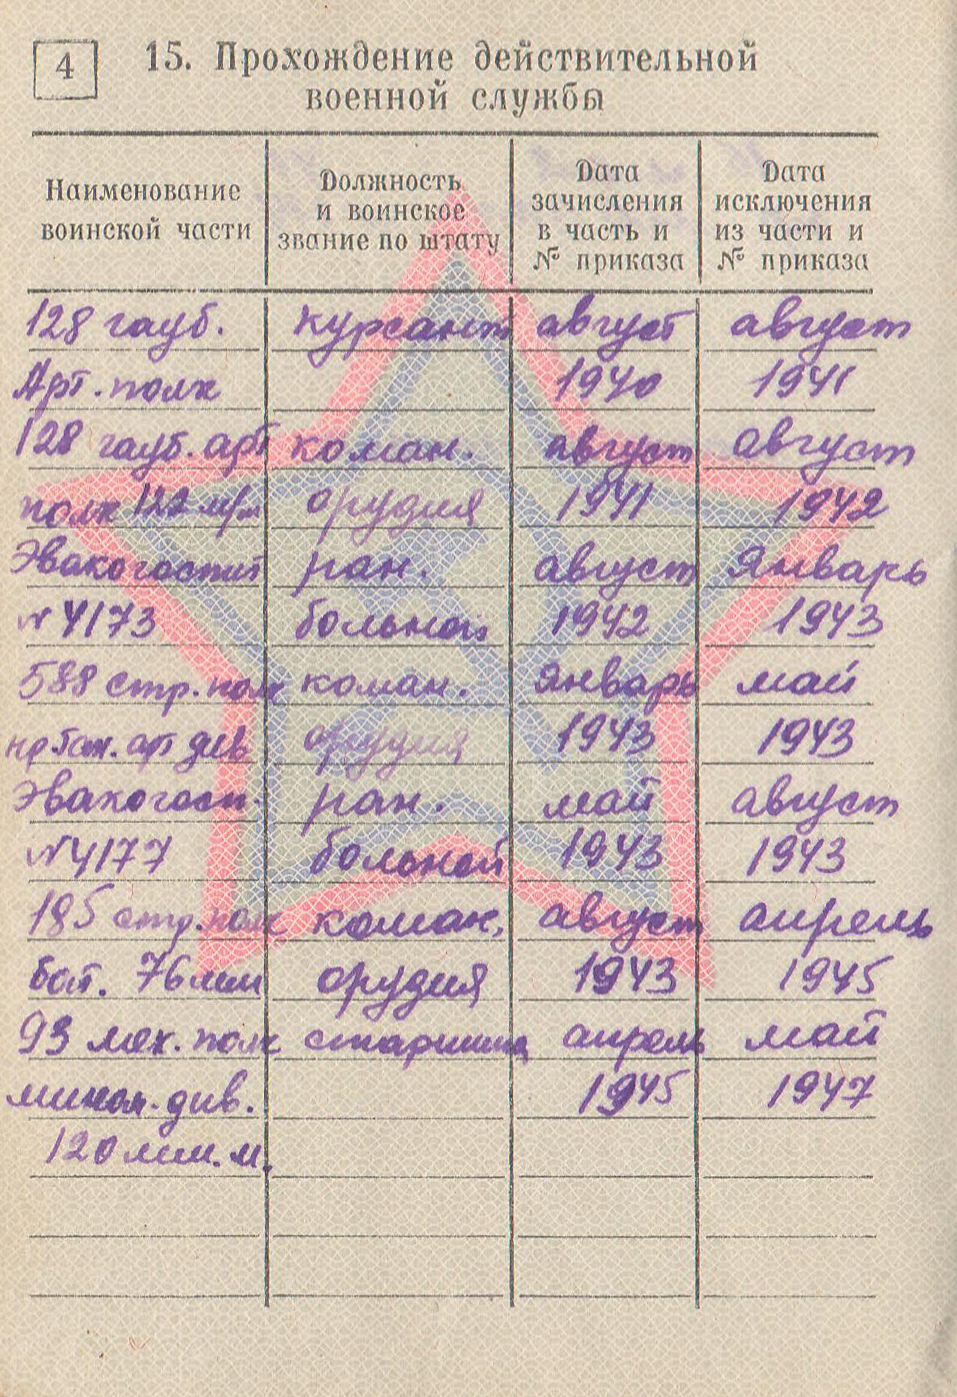 4
15. Прохождение действительной
военной службы
Наименование
воинской части
Должность
и воинское
звание по штату
Дата
зачисления
в часть и
№ приказа
Дата
исключения
из части и
№ приказа
128 гауб. курсант август август
Арт. полк 1940 1941
128 гауб. арт коман. август август
полк 122 м/м орудия 1941 1942
Эвакогоспит ран. август Январь
№ 4173 больной 1942 1943
588 стр. полк коман. Январь май
арт див орудия 1943 1943
Эвакогосп. ран. май август
№ 4177 больной 1943 1943
185 стр. полк коман. август апрель
бат. 76 мм орудия 1943 1945
93 мех. полк старшина апрель май
мином. див. 1945 1947
120 мм. м.